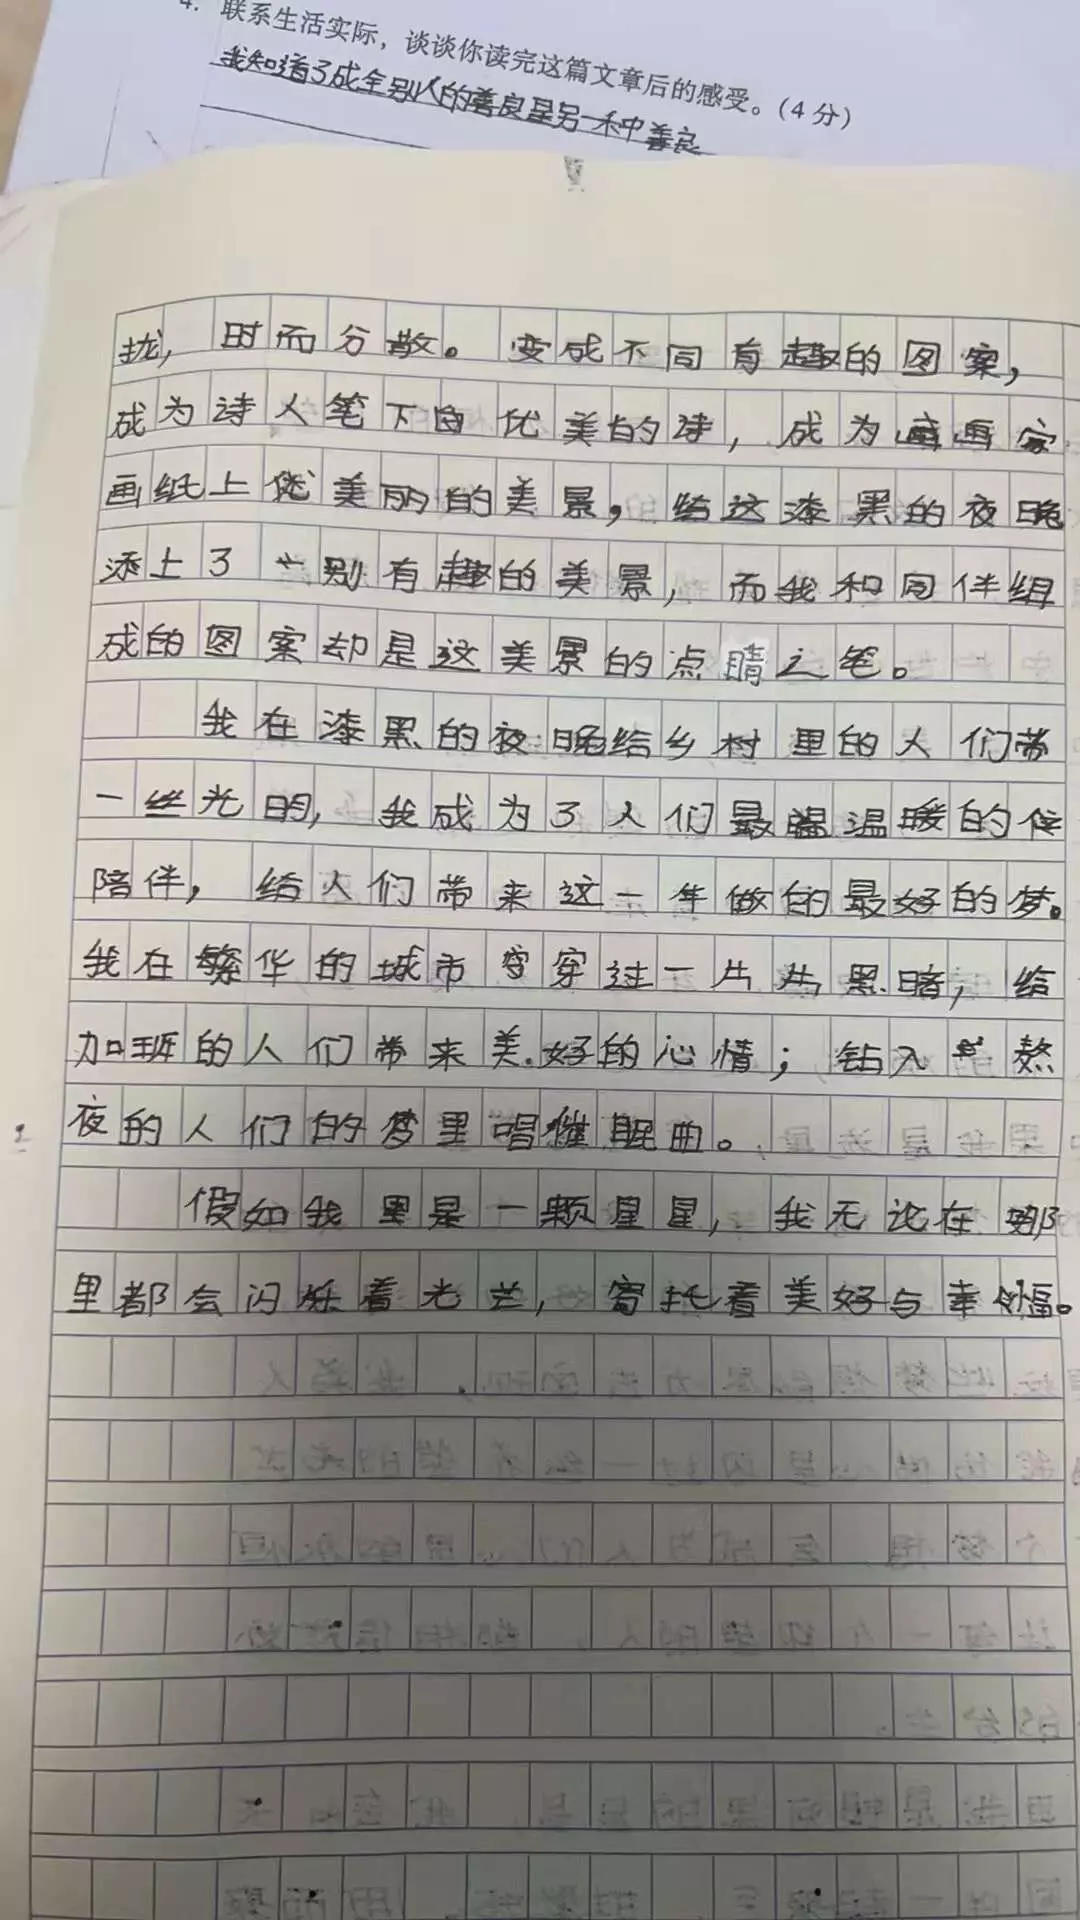 4. 联系生活实际，谈谈你读完这篇文章后的感受。（4分）
我知道了成全别人的善良是另一种善良
拢，时而分散。变成不同有趣的图案，
成为诗人笔下自优美的诗，成为画画家
画纸上优美丽的美景，给这漆黑的夜晚
添上了个别有趣的美景，而我和同伴组
成的图案却是这美景的点睛之笔。
我在漆黑的夜晚给乡村里的人们带
一丝光明，我成为了人们最温温暖的
陪伴，给人们带来这一年做的最好的梦。
我在繁华的城市穿穿过一片片黑暗，给
加班的人们带来美好的心情；钻入熬
夜的人们的梦里唱催眠曲。
假如我里是一颗星星，我无论在哪
里都会闪烁着光芒，寄托着美好与幸福。